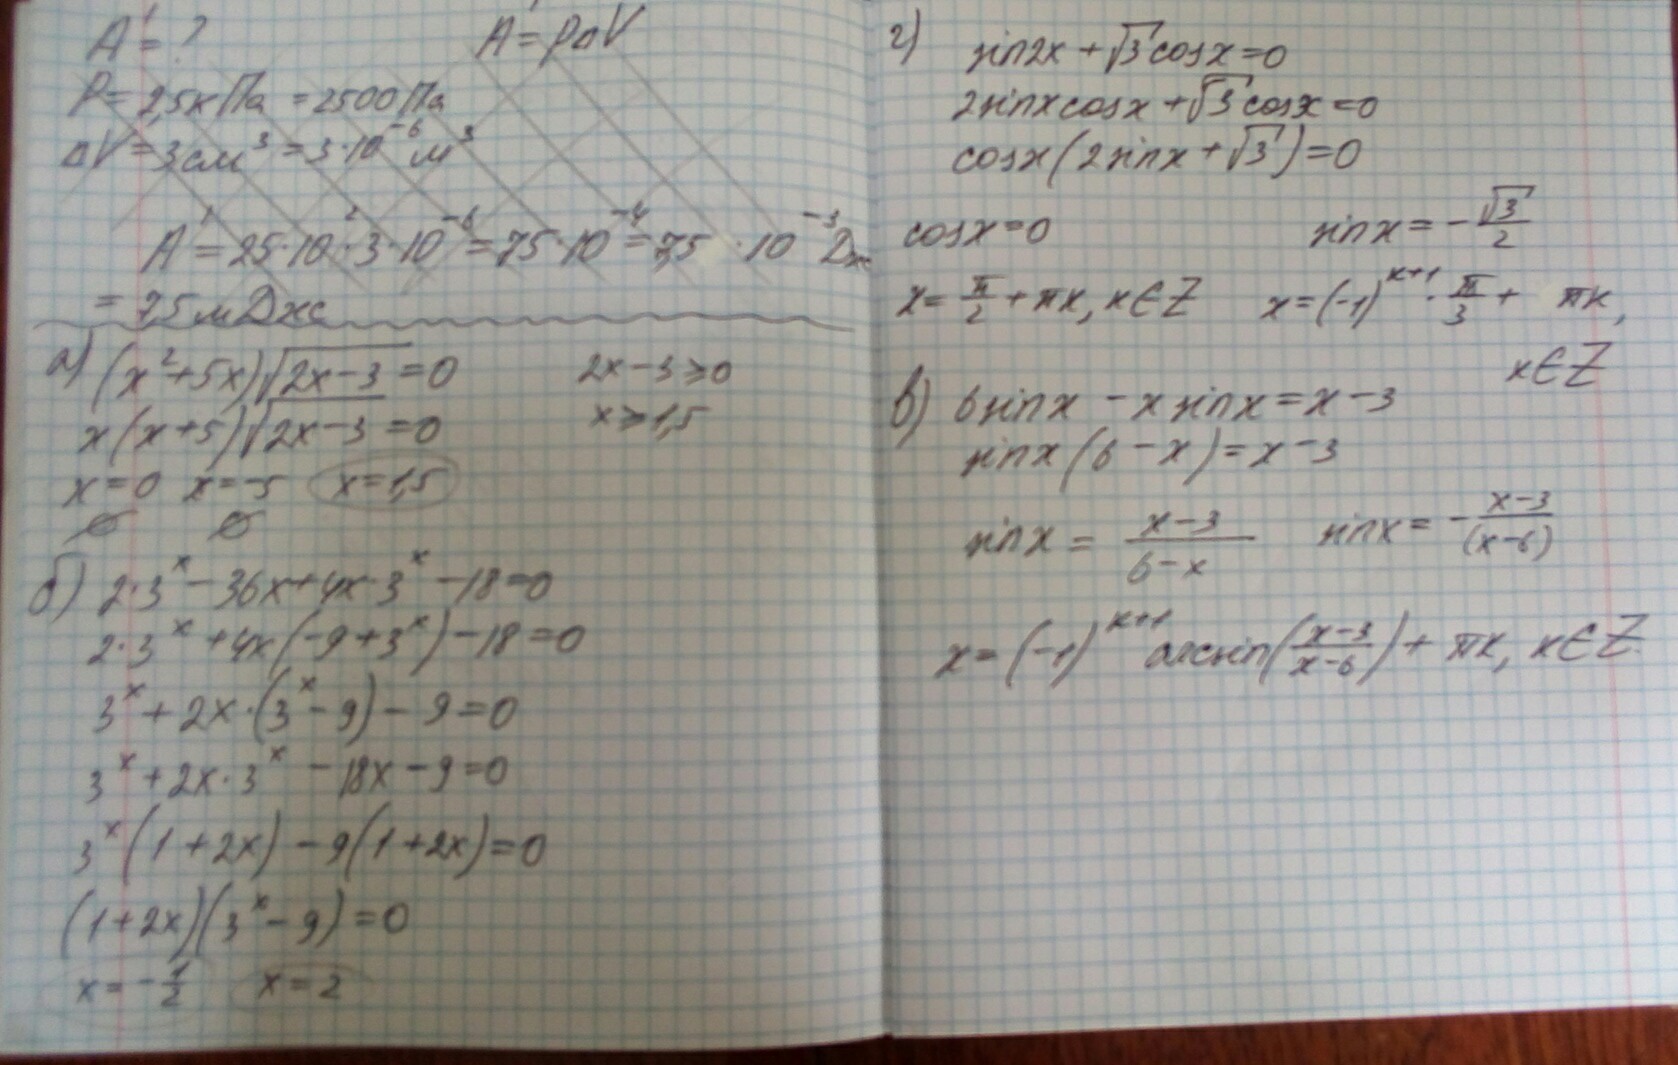 A' = ?
A' = pΔV
P = 2,5кПа = 2500Па
ΔV = 3см³ = 3·10⁻⁶м³
A' = 25·10²·3·10⁻⁶ = 75·10⁻⁴ = 7,5 ·10⁻³ Дж
= 7,5мДж
а) (x²+5x)√(2x-3) = 0
2x-3⩾0
x(x+5)√(2x-3) = 0
x⩾1,5
x=0 x=-5 x=1,5
∅ ∅
б) 2·3ˣ - 36x + 4x·3ˣ - 18 = 0
2·3ˣ + 4x(-9+3ˣ) - 18 = 0
3ˣ + 2x·(3ˣ-9) - 9 = 0
3ˣ + 2x·3ˣ - 18x - 9 = 0
3ˣ(1+2x) - 9(1+2x) = 0
(1+2x)(3ˣ-9) = 0
x = -1/2 x = 2
г) sin2x + √3 cosx = 0
2sinxcosx + √3 cosx = 0
cosx(2sinx + √3) = 0
cosx = 0 sinx = -√3/2
x = π/2 + πк, к∈Z x = (-1)ᵏ⁺¹ · π/3 + πк,
к∈Z
в) 6sinx - xsinx = x-3
sinx(6-x) = x-3
sinx = (x-3)/(6-x) sinx = -(x-3)/(x-6)
x = (-1)ᵏ⁺¹ arcsin((x-3)/(x-6)) + πк, к∈Z.